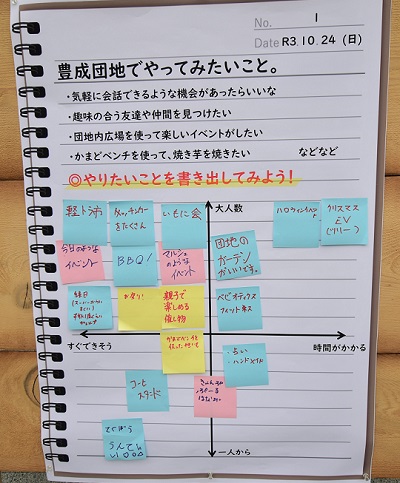 No. 1
Date R3.10.24 (日)
豊成団地でやってみたいこと。
・気軽に会話できるような機会があったらいいな
・趣味の合う友達や仲間を見つけたい
・団地内広場を使って楽しいイベントがしたい
・かまどベンチを使って、焼き芋を焼きたい などなど
◎やりたいことを書き出してみよう!
大人数
軽トラ市
キッチンカー
をたくさん
いもに会
ハロウィンイベント
クリスマス
EV
(ツリー)
今日のような
イベント
BBQ!
マルシェ
のような
イベント
団地の
ガーデン
がいいです。
縁日
お祭り!
親子で
楽しめる
催し物
すぐできそう
時間がかかる
占い
・ハンドメイル
コーヒー
スタンド
てつぼう
一人から